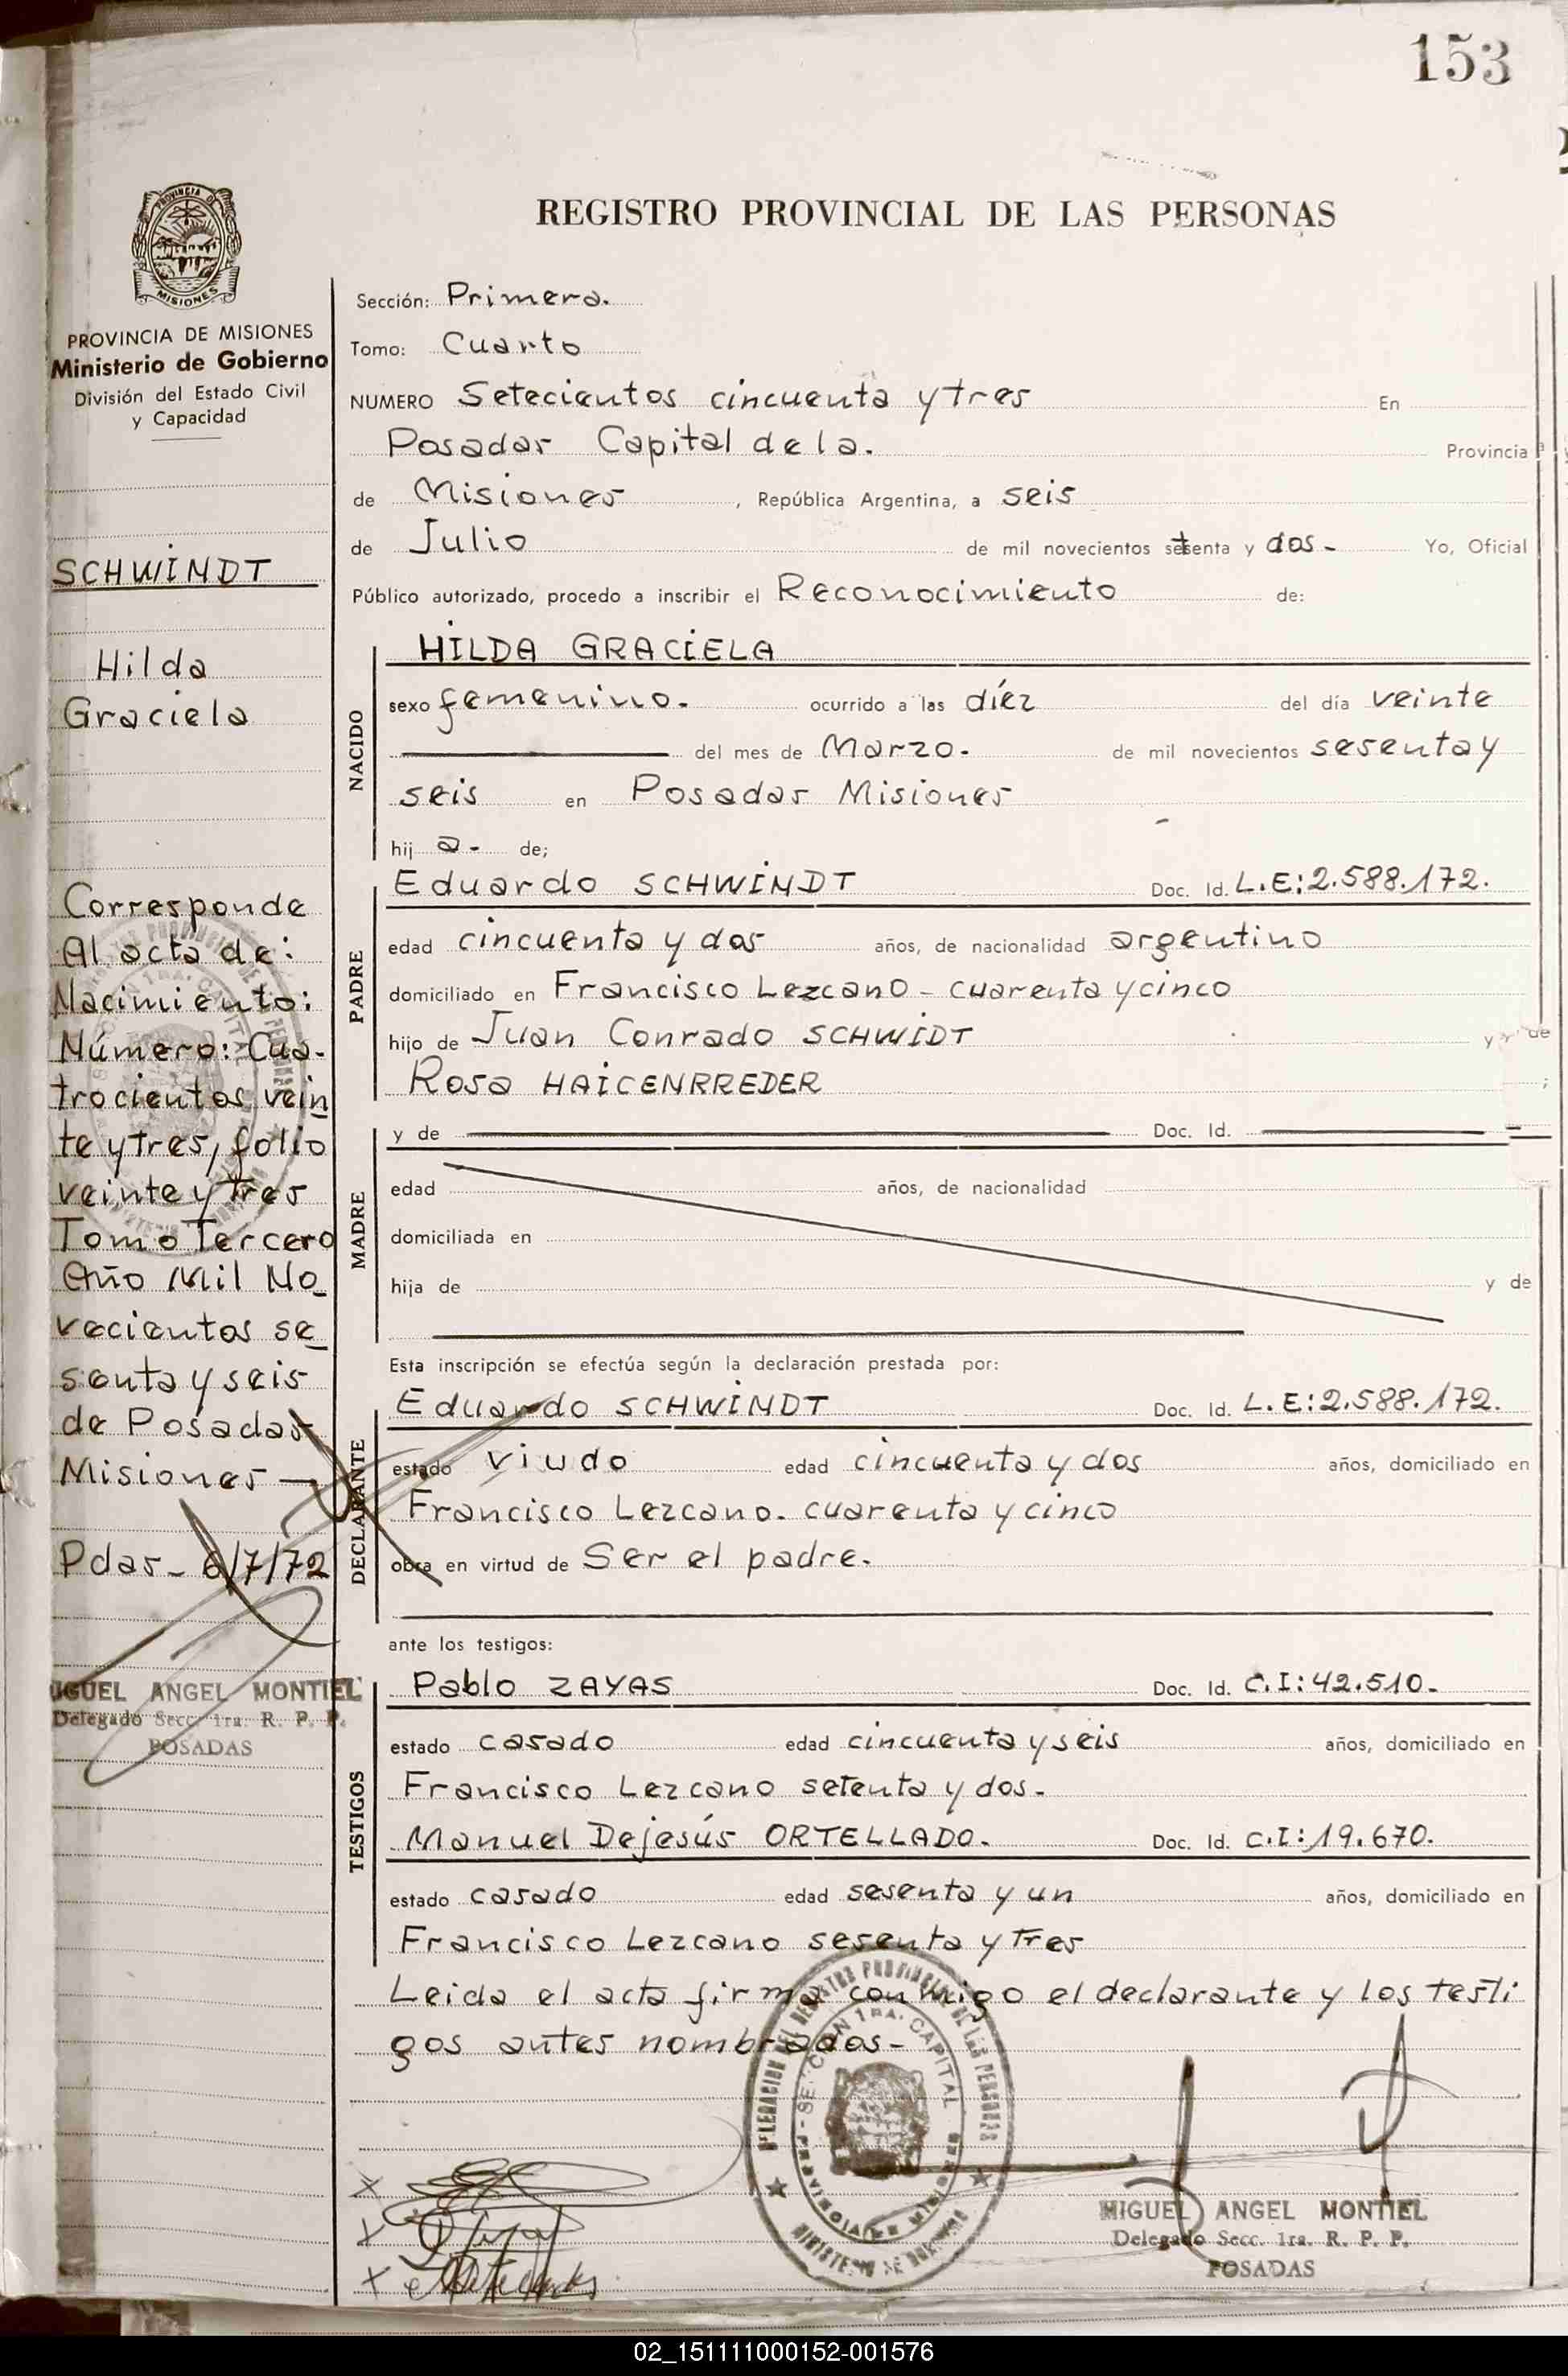 153
REGISTRO PROVINCIAL DE LAS PERSONAS
PROVINCIA DE MISIONES
PROVINCIA DE MISIONES
Ministerio de Gobierno
División del Estado Civil
y Capacidad
SCHWINDT
Hilda
Graciela
Corresponde
Al acta de:
Nacimiento:
Número: Cua-
trocientos vein
te y tres, folio
veinte y tres
Tomo Tercero
Año Mil No_
vecientos se_
senta y seis
de Posadas
Misiones —
Pdas- 6/7/72
IGUEL ANGEL MONTIEL
Delegado Secc. 1ra. R. P. P.
POSADAS
Sección: Primera.
Tomo: Cuarto
NUMERO Setecientos cincuenta y tres En
Posadas Capital de la. Provincia
de Misiones , República Argentina, a seis
de Julio de mil novecientos setenta y dos- Yo, Oficial
Público autorizado, procedo a inscribir el Reconocimiento de:
NACIDO
HILDA GRACIELA
sexo femenino. ocurrido a las díez del día veinte
del mes de Marzo. de mil novecientos sesenta y
seis en Posadas Misiones
hij a- de;
PADRE
Eduardo SCHWINDT Doc. Id. L.E:2.588.172.
edad cincuenta y dos años, de nacionalidad argentino
domiciliado en Francisco Lezcano - cuarenta y cinco
hijo de Juan Conrado SCHWIDT y de
Rosa HAICENRREDER
MADRE
y de Doc. Id.
edad años, de nacionalidad
domiciliada en
hija de y de
Esta inscripción se efectúa según la declaración prestada por:
DECLARANTE
Eduardo SCHWINDT Doc. Id. L.E:2.588.172.
estado viudo edad cincuenta y dos años, domiciliado en
Francisco Lezcano. cuarenta y cinco
obra en virtud de Ser el padre.
ante los testigos:
TESTIGOS
Pablo ZAYAS Doc. Id. C.I:42.510-
estado casado edad cincuenta y seis años, domiciliado en
Francisco Lezcano setenta y dos-
Manuel Dejesús ORTELLADO. Doc. Id. C.I:19.670.
estado casado edad sesenta y un años, domiciliado en
Francisco Lezcano sesenta y tres
Leida el acta firma conmigo el declarante y los testi
gos antes nombrados-
SECCION 1RA. CAPITAL
MIGUEL ANGEL MONTIEL
Delegado Secc. 1ra. R. P. P.
POSADAS
02_151111000152-001576